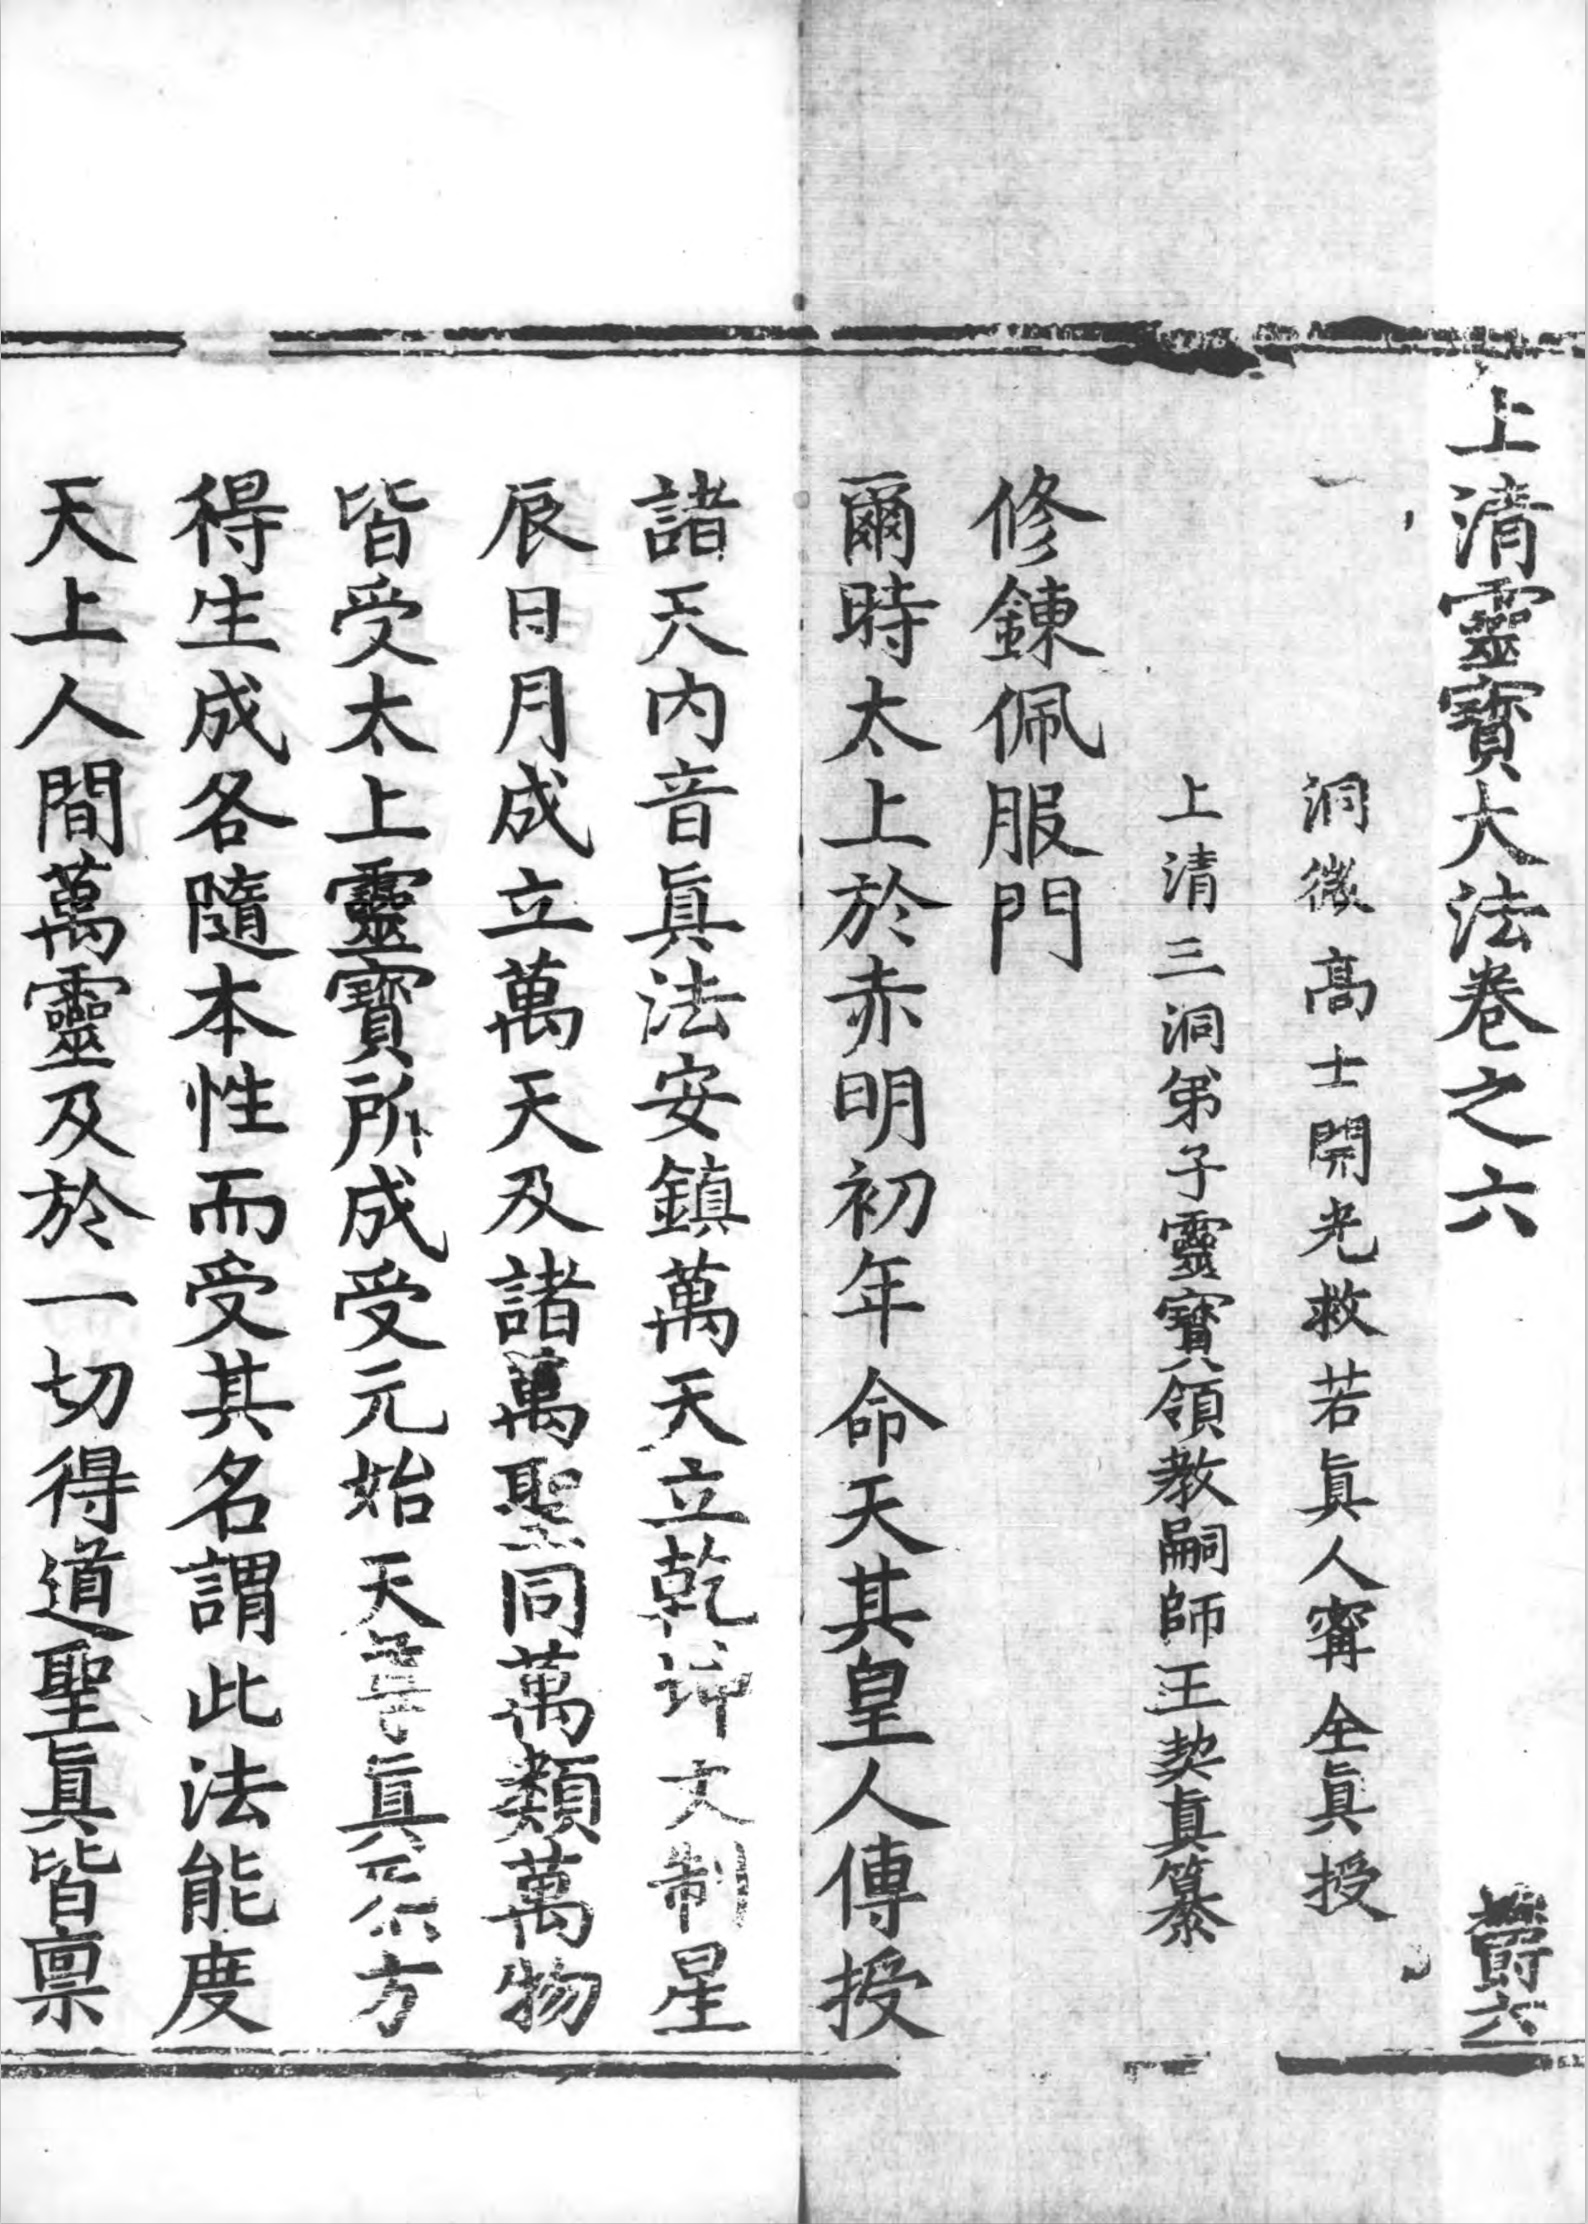 上清靈寶大法卷之六 欝六
洞微高士開光救若眞人甯全眞授
上清三洞弟子靈寶領教嗣師王契真纂
修鍊佩服門
爾時太上於赤明初年命天其皇人傳授
諸天内音眞法安鎮萬天立乾 文制星
辰日月成立萬天及諸萬聖同萬類萬物
皆受太上靈寶所成受元始天尊真 方
得生成各隨本性而受其名謂此法能度
天上人間萬靈及於一切得道聖眞皆禀